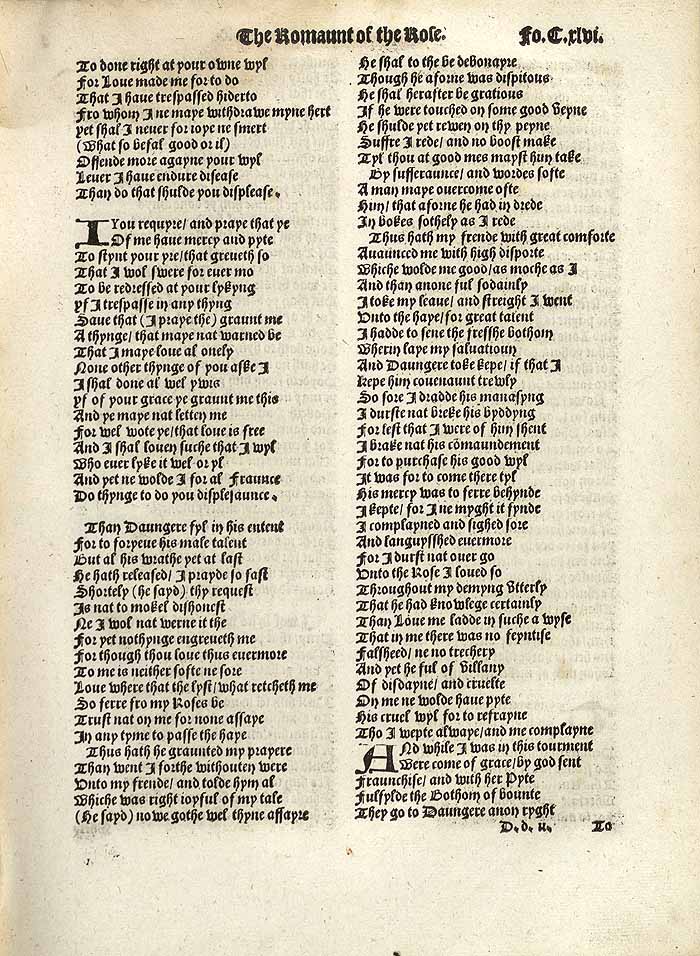 The Romaunt of the Rose. Fo. C. xlvi.
To done right at your owne wyl
For Loue made me for to do
That I haue trespassed hiderto
Fro whom I ne maye withdrawe myne hert
yet shal I neuer for ioye ne smert
(What so befal good or il)
Offende more agayne your wyl
Leuer I haue endure disease
Than do that shulde you displease.
I You requyre/ and praye that ye
Of me haue mercy and pyte
To stynt your yre/ that greueth so
That I wol swere for euer mo
To be redressed at your lykyng
yf I trespasse in any thyng
Saue that (I praye the) graunt me
A thynge/ that maye nat warned be
That I maye loue al onely
None other thynge of you aske I
I shal done al wel ywis
yf of your grace ye graunt me this
And ye maye nat letten me
For wel wote ye/ that loue is free
And I shal louen suche that I wyl
Who euer lyke it wel or yl
And yet ne wolde I for al Fraunce
Do thynge to do you displesaunce.
Than Daungere fyl in his entent
For to foryeue his male talent
But al his wrathe yet at last
He hath released/ I prayde so fast
Shortely (he sayd) thy request
Is nat to mokel dishonest
Ne I wol nat werne it the
For yet nothynge engreueth me
For though thou loue thus euermore
To me is neither softe ne sore
Loue where that the lyst/ what retcheth me
So ferre fro my Roses be
Trust nat on me for none assaye
In any tyme to passe the haye
Thus hath he graunted my prayere
Than went I forthe withouten were
Vnto my frende/ and tolde hym al
Whiche was right ioyful of my tale
(He sayd) nowe gothe wel thyne affayre
He shal to the be debonayre
Though he aforne was dispitous
He shal herafter be gratious
If he were touched on some good veyne
He shulde yet rewen on thy peyne
Suffre I rede/ and no boost make
Tyl thou at good mes mayst hun take
By sufferaunce/ and wordes softe
A man maye ouercome ofte
Hun/ that aforne he had in drede
In bokes sothely as I rede
Thus hath my frende with great comforte
Auaunced me with high disporte
Whiche wolde me good/ as moche as I
And than anone ful sodainly
I toke my leaue/ and streight I went
Vnto the haye/ for great talent
I hadde to sene the fresshe bothom
Wherin laye my saluatioun
And Daungere toke kepe/ if that I
Kepe him couenaunt trewly
So sore I dradde his manasyng
I durste nat breke his byddyng
For lest that I were of hun shent
I brake nat his cōmaundement
For to purchase his good wyl
It was for to come there tyl
His mercy was to ferre behynde
I kepte/ for I ne myght it fynde
I complayned and sighed sore
And languysshed euermore
For I durst nat ouer go
Vnto the Rose I loued so
Throughout my demyng vtterly
That he had knowlege certainly
Than Loue me ladde in suche a wyse
That in me there was no feyntise
Falsheed/ ne no trechery
And yet he ful of villany
Of disdayne/ and cruelte
On me ne wolde haue pyte
His cruel wyl for to refrayne
Tho I wepte alwaye/ and me complayne
ANd while I was in this tourment
Were come of grace/ by god sent
Fraunchise/ and with her Pyte
Fulfylde the Bothom of bounte
They go to Daungere anon ryght
D.d.ii. To